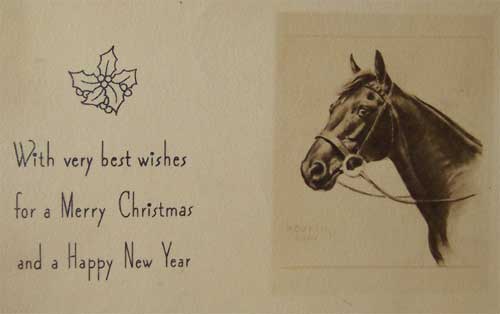 With very best wishes
for a Merry Christmas
and a Happy New Year